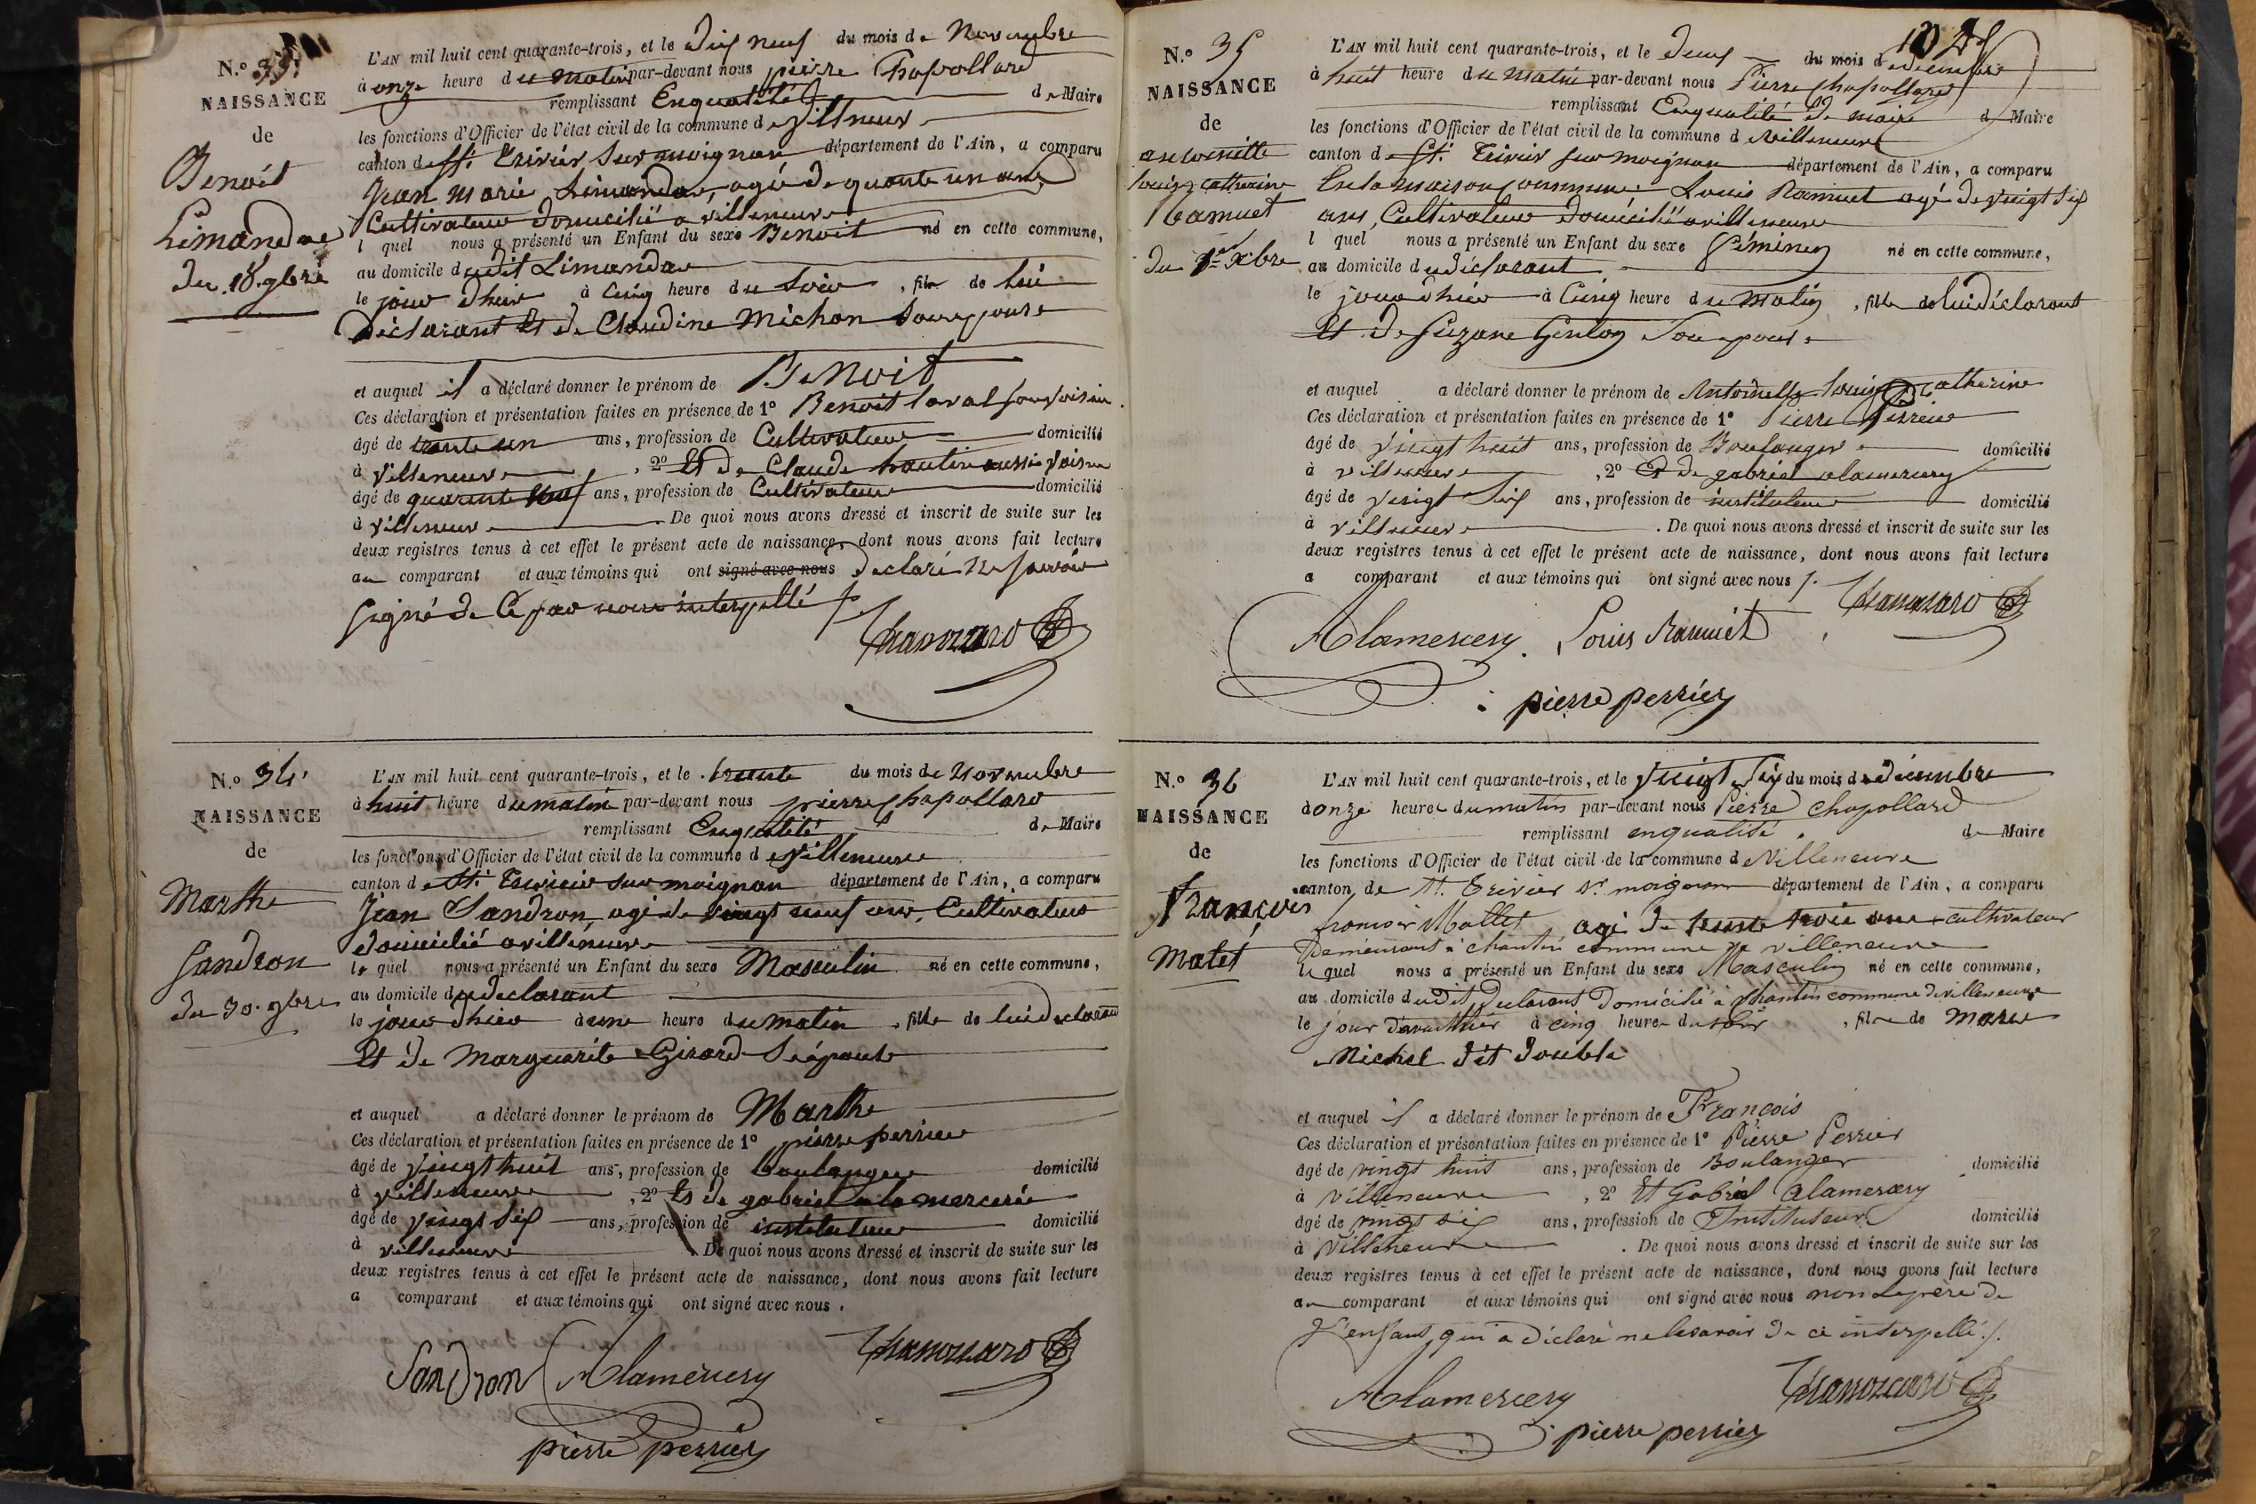 N.º 33
NAISSANCE
de
Benoit
Limandas
du 18. 9bre
L'AN mil huit cent quarante-trois, et le dix neuf du mois de Novembre
à onze heure du matin par-devant nous pierre Chapollard
remplissant Enqualité de Maire
les fonctions d'Officier de l'état civil de la commune de Villeneuve
canton de St. Trivier sur moignan département de l'Ain, a comparu
Jean Marie Limandas, agé de quarante un ans
Cultivateur domicilié a villeneuve
l quel nous a présenté un Enfant du sexe Benoit né en cette commune,
au domicile dudit Limandas
le jour d'hier à Cinq heure du Soir, fils de lui
déclarant Et de Claudine Michon Son epouse
et auquel il a déclaré donner le prénom de Benoit
Ces déclaration et présentation faites en présence de 1º Benoit Laval son voisin
âgé de trente un ans, profession de Cultivateur domicilié
à Villeneuve, 2º Et de Claude hautin aussi Voisin
âgé de quarante neuf ans, profession de Cultivateur domicilié
à Villeneuve. De quoi nous avons dressé et inscrit de suite sur les
deux registres tenus à cet effet le présent acte de naissance, dont nous avons fait lecture
au comparant et aux témoins qui ont signé avec nous declaré ne savoir
signé de Ce par nous interpellé
N.º 34
NAISSANCE
de
Marthe
Sandron
du 30. 9bre
L'AN mil huit cent quarante-trois, et le trente du mois de Novembre
à huit heure du matin par-devant nous pierre Chapollard
remplissant Enqualité de Maire
les fonctions d'Officier de l'état civil de la commune de Villeneuve
canton de St. Trivier sur moignan département de l'Ain, a comparu
Jean Sandron, agé de vingt neuf ans, Cultivateur
domicilié a villeneuve
le quel nous a présenté un Enfant du sexe Masculin né en cette commune,
au domicile du declarant
le jour d'hier à une heure du matin, fille de lui declarant
Et de Marguerite Girard Sa épouse
et auquel a déclaré donner le prénom de Marthe
Ces déclaration et présentation faites en présence de 1º pierre perrier
âgé de vingt huit ans, profession de boulanger domicilié
à villeneuve, 2º Et de gabriel a la mercerie
âgé de vingt six ans, profession de instituteur domicilié
à villeneuve. De quoi nous avons dressé et inscrit de suite sur les
deux registres tenus à cet effet le présent acte de naissance, dont nous avons fait lecture
a comparant et aux témoins qui ont signé avec nous.
Sandron Alamercery
pierre perrier
N.º 35
NAISSANCE
de
antoinette
louise catherine
Ramuet
du 1er Xbre
L'AN mil huit cent quarante-trois, et le deux du mois de décembre
à huit heure du matin par-devant nous Pierre Chapollard
remplissant Enqualité de maire d Maire
les fonctions d'Officier de l'état civil de la commune d villeneuve
canton d St. Trivier sur moignan département de l'Ain, a comparu
En la maison Commune Louis Ramuet agé de vingt six
ans, Cultivateur domicilié a villeneuve
l quel nous a présenté un Enfant du sexe Féminin né en cette commune,
au domicile du déclarant
le jour d'hier à Cinq heure du Matin, fille de lui déclarant
Et de Suzane Genton Son epouse
et auquel a déclaré donner le prénom de Antoinette louise Catherine
Ces déclaration et présentation faites en présence de 1º Pierre Perrier
âgé de vingt huit ans, profession de Boulanger domicilié
à villeneuve, 2º Et de gabriel alamercery
âgé de vingt six ans, profession de instituteur domicilié
à villeneuve. De quoi nous avons dressé et inscrit de suite sur les
deux registres tenus à cet effet le présent acte de naissance, dont nous avons fait lecture
a comparant et aux témoins qui ont signé avec nous
Alamercery. Louis Ramuet
pierre perrier
N.º 36
NAISSANCE
de
François
Malet
L'AN mil huit cent quarante-trois, et le vingt six du mois de décembre
à onze heure du matin par-devant nous Pierre Chapollard
remplissant enqualité de Maire
les fonctions d'Officier de l'état civil de la commune de Villeneuve
canton de St. Trivier sr. moignan département de l'Ain, a comparu
francois Mallet agé de trente trois ans cultivateur
Demeurant à chantin commune de villeneuve
le quel nous a présenté un Enfant du sexe Masculin né en cette commune,
au domicile dudit Declarant Domicilié à chantin commune de villeneuve
le jour d'avanthier à cinq heure du soir, fils de Marie
Michel dit double
et auquel il a déclaré donner le prénom de François
Ces déclaration et présentation faites en présence de 1º Pierre Perrier
âgé de vingt huit ans, profession de Boulanger domicilié
à Villeneuve, 2º Et Gabriel Alamercery
âgé de vingt six ans, profession de Instituteur domicilié
à Villeneuve. De quoi nous avons dressé et inscrit de suite sur les
deux registres tenus à cet effet le présent acte de naissance, dont nous avons fait lecture
au comparant et aux témoins qui ont signé avec nous non le père de
l'enfant qui a déclaré ne le savoir de ce interpellé
Alamercery
pierre perrier